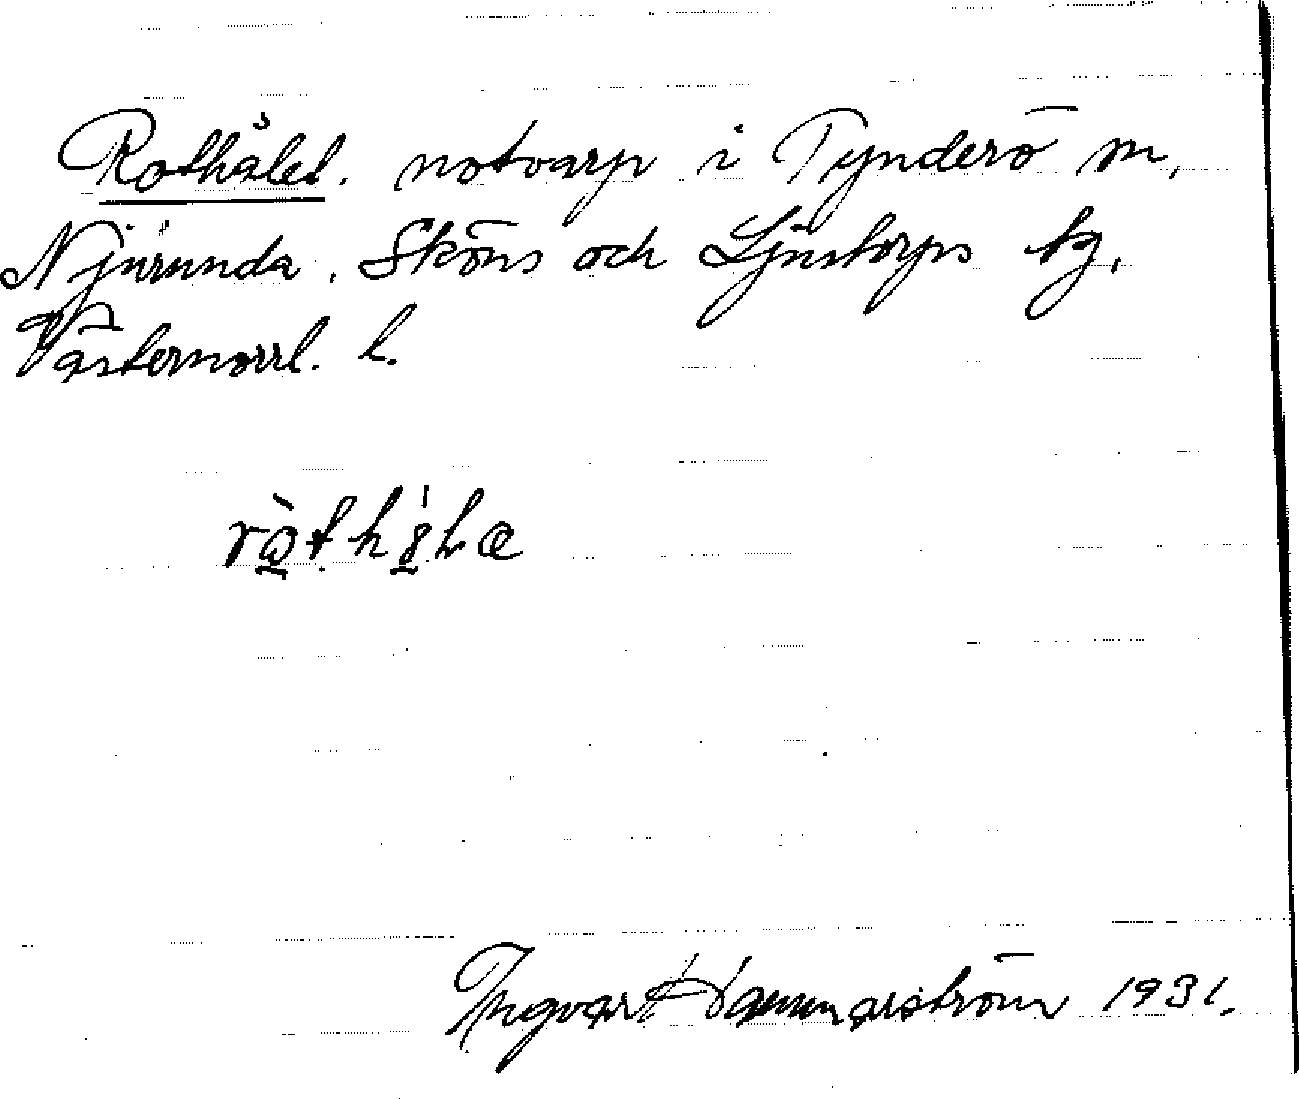 Rothålet. notvarp i Tynderö m,
Njurunda, Sköns och Ljustorps tg,
Västernorrl. l.
Ingvar Hammarström 1931.